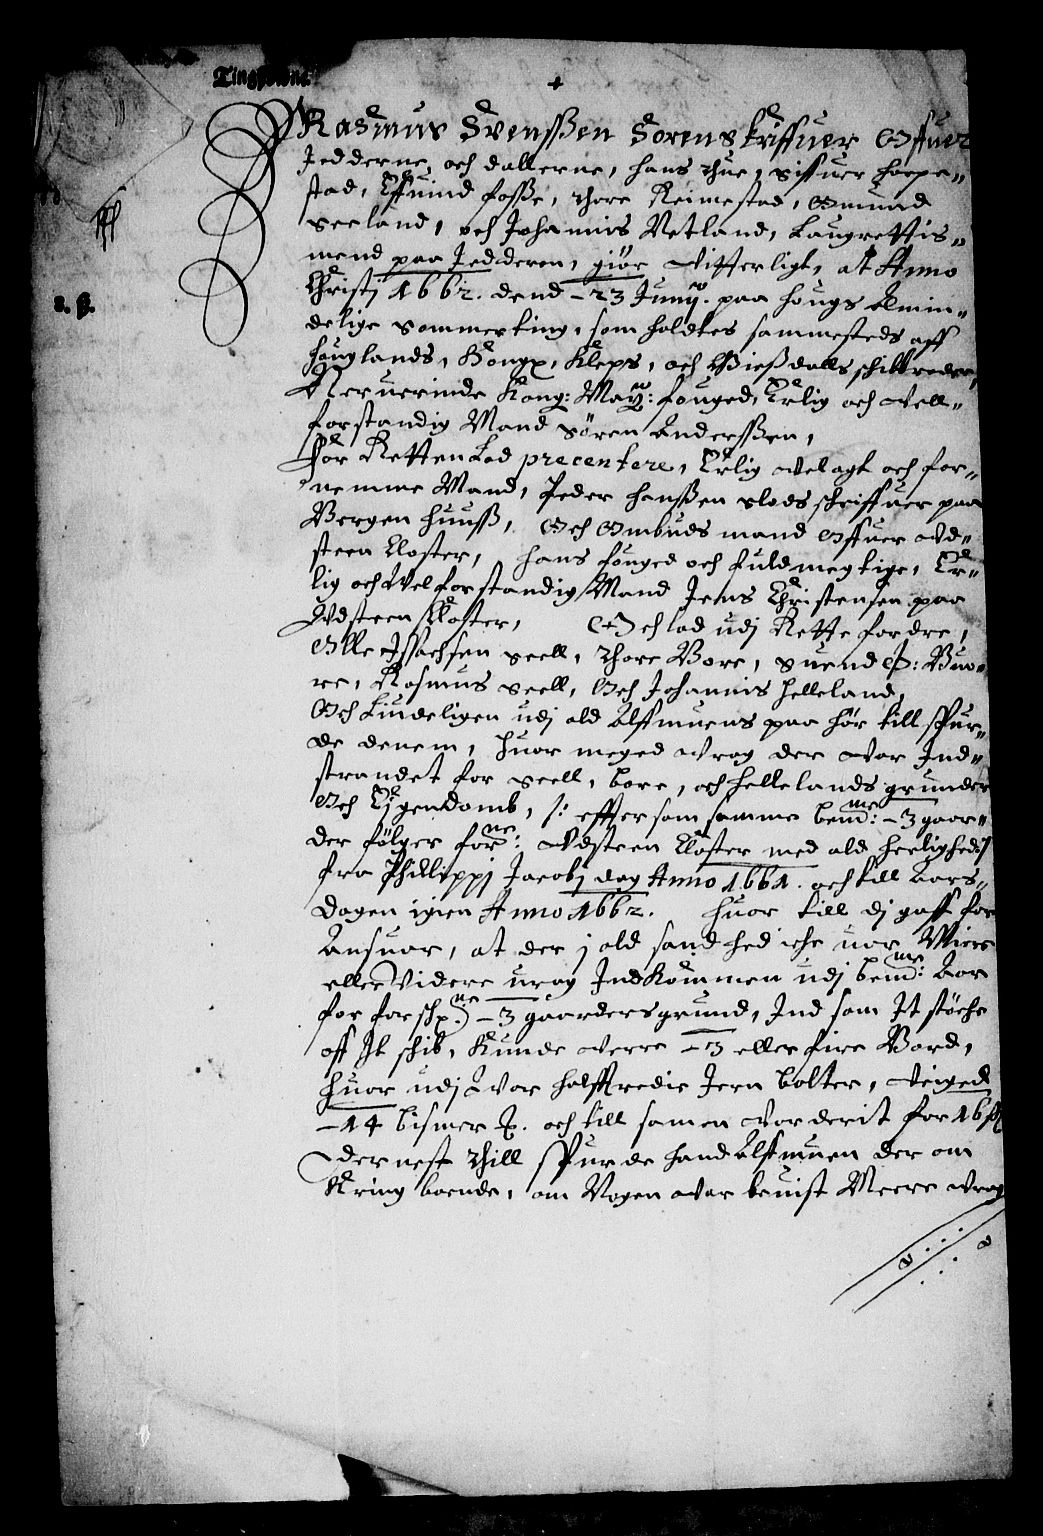 Tingsuidne
2. ß.
Rasmus Svenssen Sorenskriffuer Offuer
Jedderne, och dallerne, hans thue, siffuer hoepe-
stad, Effuind fosse, thore Reimestad, Omund
seeland, och Johannis Netland, Laugrettis-
mend paa Jedderen, giør vitterligt, at Anno
Christj 1662. dend -23 Junij. paa hougs Almin-
delige sommerting, som holdtes sammesteds aff
houglands, Kongx, Kleps, och Giesdalls schibbreder,
Neruerinde Kong: May: fouged, Erlig och vell-
forstandig Mand sören Anderssen,
For Retten Lod precentere, Erlig velagt och for-
nemme Mand, Peder hanssen slods schriffuer paa
Bergen huuss, Och Ombudsmand Offuer Vd-
steen Closter, hans fouged och fuldmegtige, Er-
lig och Velforstandig Mand Jens Christensen paa
Vdsteen Closter, Och lod udj Rette fordre,
Olle Issachsen seell, thore Bore, suend P: Buo-
re, Rasmus seell, Och Johannis helleland,
Och Liudeligen udj ald Allmuens paa hør till spur-
de dennem, huor meged vrag der var Ind-
strandet for seell, bore, och hellelands grunder
Och Eigendomb, /: effter som samme bemme: -3 gaar-
der følger forne: Vdsteen Closter med ald herlighed :/
fra Philippj Jacobj dag Anno 1661. och till Aars-
dagen igien Anno 1662. huor till dj gaff for
Ansuar, at der j ald sandhed iche uar Miere
eller Videre urag Indkommen udj bemme: Aar
for forschne -3 gaarders grund, Ind som It støche
aff It schib, Kunde verre -3 eller fire Bord,
huor udj var halfftredie Jern bolter, veiged
-14 bismer ℔. och till samen vorderit for 16 ß
dernest thill spurde hand Allmuen der om
Kring boende, om Nogen var beuist Meere vrag